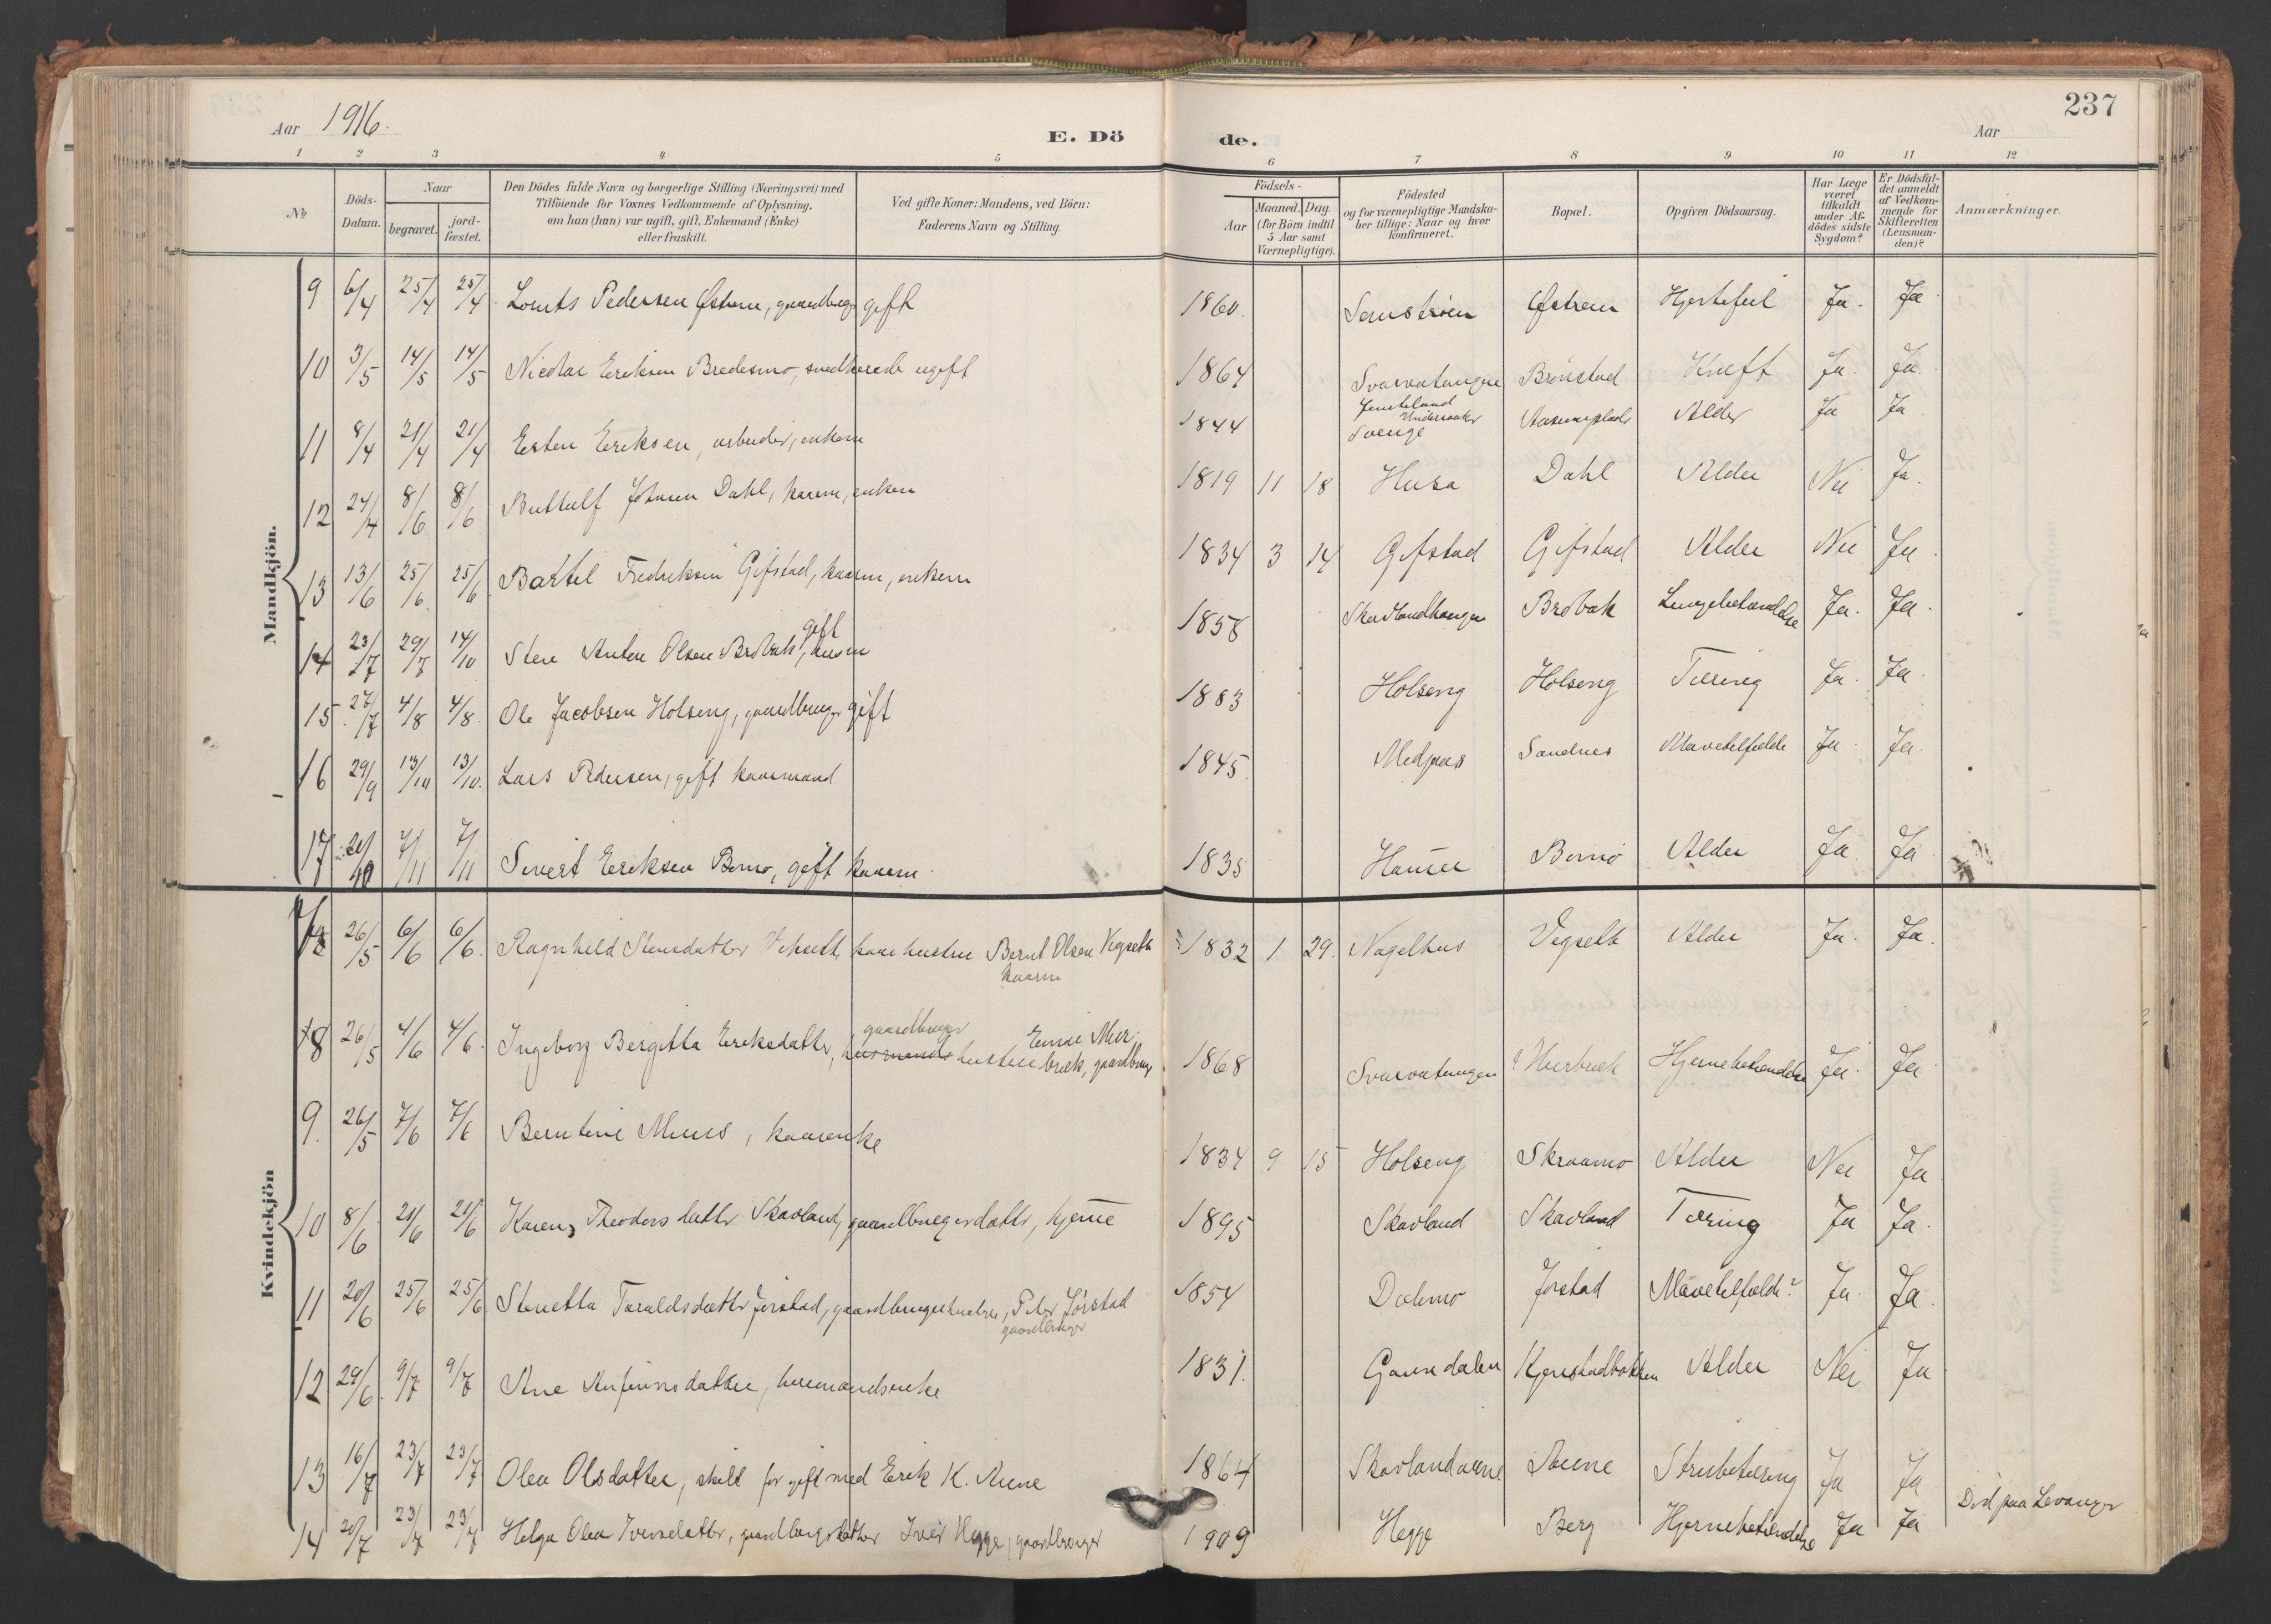 237
Aar 1916.
E. Dö
de.
Aar
1 2 3 4 5 6 7 8 9 10 11 12
№
Döds-
Datum.
Naar
begravet.
jord-
fæstet.
Den Dödes fulde Navn og borgerlige Stilling (Næringsvei) med
Tilföiende for Voxnes Vedkommende af Oplysning,
om han (hun) var ugift, gift, Enkemand (Enke)
eller fraskilt.
Ved gifte Koner: Mandens, ved Börn:
Faderens Navn og Stilling.
Födsels-
Aar
Maaned. Dag.
(for Börn indtil
5 Aar samt
Værnepligtige).
Födested
og for værnepligtige Mandska-
ber tillige: Naar og hvor
konfirmeret.
Bopæl.
Opgiven Dödsaarsag.
Har Læge
været
tilkaldt
under Af-
dödes sidste
Sygdom?
Er Dödsfal-
det anmeldt
af Vedkom-
mende for
Skifteretten
(Lensman-
den)?
Anmærkninger.
Mandkjön.
9 6/4 25/4 25/4 Pedersen Østrem, gaardbrug. gift 1860. Østrem Hjertefeil Ja. Ja
10 3/5 14/5 14/5 Nicolai Eriksen Bredesmo, ugift 1864 Svarvatangen Brønstad Kræft Ja. Ja.
11 8/4 21/4 21/4 Esten Eriksen, arbeider, enkem 1844 Jemteland Undersaker Sverige Alder Ja Ja
12 24/4 8/6 8/6 Johnsen Dahl, kaarm, enkem 1819 11 18 Husa Dahl Alder Nei Ja.
13 13/6 25/6 25/6 Bartel Fredriksen Gifstad, kaarm, enkem 1834 3 14 Gifstad Gifstad Alder Nei Ja.
14 23/7 29/7 14/10 Sten Anton Olsen Brobak, gift husm 1858 Skavlandhaugen Brobak Lungebetændelse Ja. Ja.
15. 27/7 4/8 4/8. Ole Jacobsen Holseng, gaardbruger gift 1883 Holseng Holseng Tæring Ja. Ja.
16 29/9 13/10 13/10. Lars Pedersen, gift kaarmand 1845. Medjaas Sandnes Mavetilfælde Ja Ja.
17 7/11 7/11 Sivert Eriksen Bomo, gift kaarm. 1835 Bomo Alder Ja Ja
Kvindekjön
7 26/5 6/6 6/6. Ragnhild Stensdatter kaarhustru Bernt Olsen Vegseth
kaarm
1832 1 29. Nagelhus Vegseth Alder Ja. Ja.
8 26/5 4/6 4/6. Ingeborg Bergitta Eriksdatter, husmands gaardbruger hustru Mur-
bræk, gaardbrug
1868 Svarvatangen Murbræk Hjernebetændelse Ja. Ja
9. 26/5 7/6 7/6 Berntine Muus, kaarenke 1834 9 15 Holseng Skraamo Alder Nei Ja
10 8/6 21/6 21/6 Karen Theodorsdatter Skavland, gaardbrugersdatter, hjemme 1895 Skavland Skavland Tæring Ja Ja.
11 20/6 25/6 25/6 Stenetta Taraldsdatter Jørstad, gaardbrugerhustru, Peter Jørstad
gaardbruger
1854 Dalemo Jørstad Mavetilfælde? Ja. Ja.
12 29/6 9/7 9/7 Ane Anfinnsdatter, husmandsenke 1831. Gaundalen Kjenstadbakken Alder Nei Ja
13 16/7 23/7 23/7 Olea Olsdatter, skilt før gift med Erik K. Aune 1864 Skavlandaune Aune Strubetæring Ja Ja
14 20/7 23/7 23/7 Helga Olea Iversdatter, gaardbrugsdatter Iver Hegge, gaardbruger 1909 Hegge Berg Hjernebetændelse Ja Ja Død paa Levanger